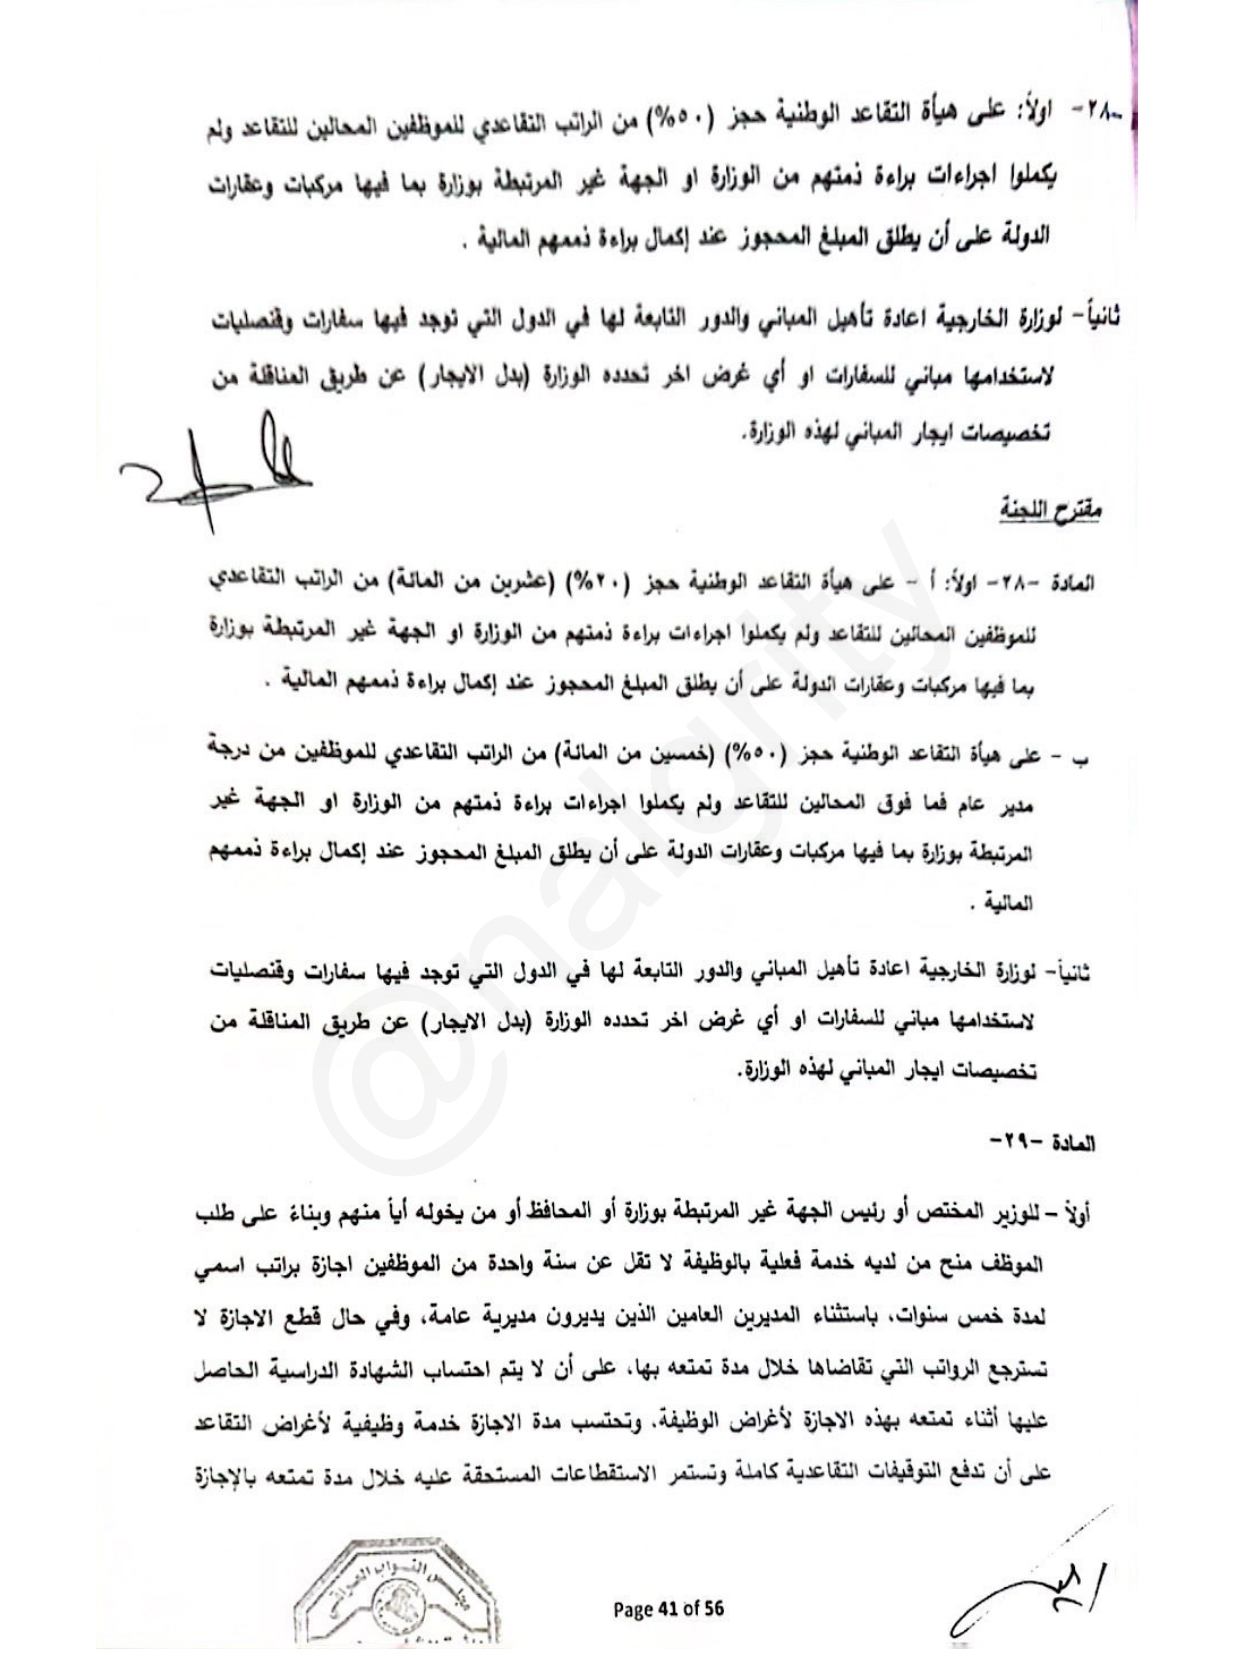 -٢٨- اولاً: على هيأة التقاعد الوطنية حجز (٥٠%) من الراتب التقاعدي للموظفين المحالين للتقاعد ولم
يكملوا اجراءات براءة ذمتهم من الوزارة او الجهة غير المرتبطة بوزارة بما فيها مركبات وعقارات
الدولة على أن يطلق المبلغ المحجوز عند إكمال براءة ذممهم المالية .
ثانياً- لوزارة الخارجية اعادة تأهيل المباني والدور التابعة لها في الدول التي توجد فيها سفارات وقنصليات
لاستخدامها مباني للسفارات او أي غرض اخر تحدده الوزارة (بدل الايجار) عن طريق المناقلة من
تخصيصات ايجار المباني لهذه الوزارة.
مقترح اللجنة
المادة -٢٨- اولاً: أ - على هيأة التقاعد الوطنية حجز (٢٠%) (عشرين من المائة) من الراتب التقاعدي
للموظفين المحالين للتقاعد ولم يكملوا اجراءات براءة ذمتهم من الوزارة او الجهة غير المرتبطة بوزارة
بما فيها مركبات وعقارات الدولة على أن يطلق المبلغ المحجوز عند إكمال براءة ذممهم المالية .
ب - على هيأة التقاعد الوطنية حجز (٥٠%) (خمسين من المائة) من الراتب التقاعدي للموظفين من درجة
مدير عام فما فوق المحالين للتقاعد ولم يكملوا اجراءات براءة ذمتهم من الوزارة او الجهة غير
المرتبطة بوزارة بما فيها مركبات وعقارات الدولة على أن يطلق المبلغ المحجوز عند إكمال براءة ذممهم
المالية .
ثانياً- لوزارة الخارجية اعادة تأهيل المباني والدور التابعة لها في الدول التي توجد فيها سفارات وقنصليات
لاستخدامها مباني للسفارات او أي غرض اخر تحدده الوزارة (بدل الايجار) عن طريق المناقلة من
تخصيصات ايجار المباني لهذه الوزارة.
المادة -٢٩-
أولاً - للوزير المختص أو رئيس الجهة غير المرتبطة بوزارة أو المحافظ أو من يخوله أياً منهم وبناءً على طلب
الموظف منح من لديه خدمة فعلية بالوظيفة لا تقل عن سنة واحدة من الموظفين اجازة براتب اسمي
لمدة خمس سنوات، باستثناء المديرين العامين الذين يديرون مديرية عامة، وفي حال قطع الاجازة لا
تسترجع الرواتب التي تقاضاها خلال مدة تمتعه بها، على أن لا يتم احتساب الشهادة الدراسية الحاصل
عليها أثناء تمتعه بهذه الاجازة لأغراض الوظيفة، وتحتسب مدة الاجازة خدمة وظيفية لأغراض التقاعد
على أن تدفع التوقيفات التقاعدية كاملة وتستمر الاستقطاعات المستحقة عليه خلال مدة تمتعه بالإجازة
مجلس النواب العراقي
Page 41 of 56
@nalqrity